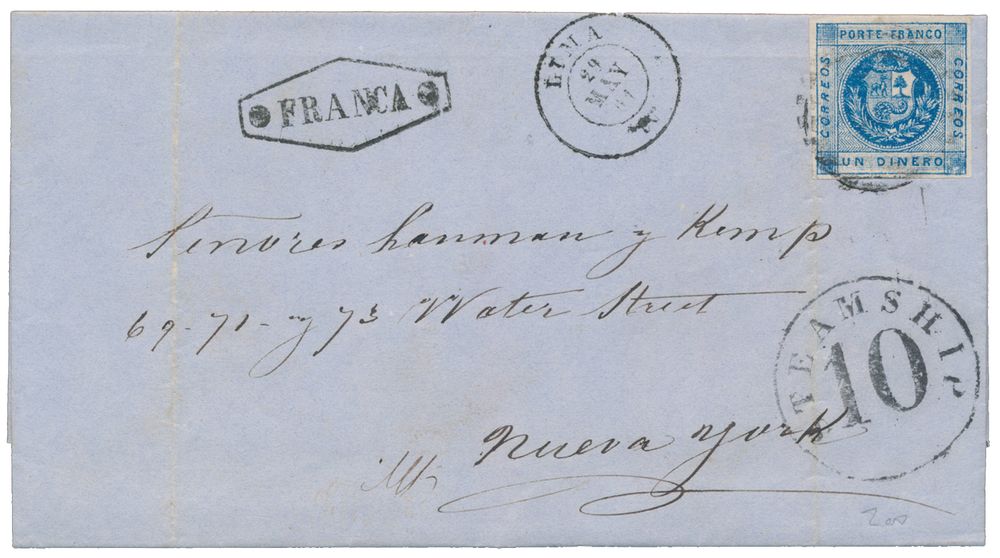 FRANCA
LIMA
29
MAY
PORTE-FRANCO
CORREOS
CORREOS
UN DINERO
Senores Lanman y Kemp
69-71-y 73 Water Street
STEAMSHIP
10
Nueva York